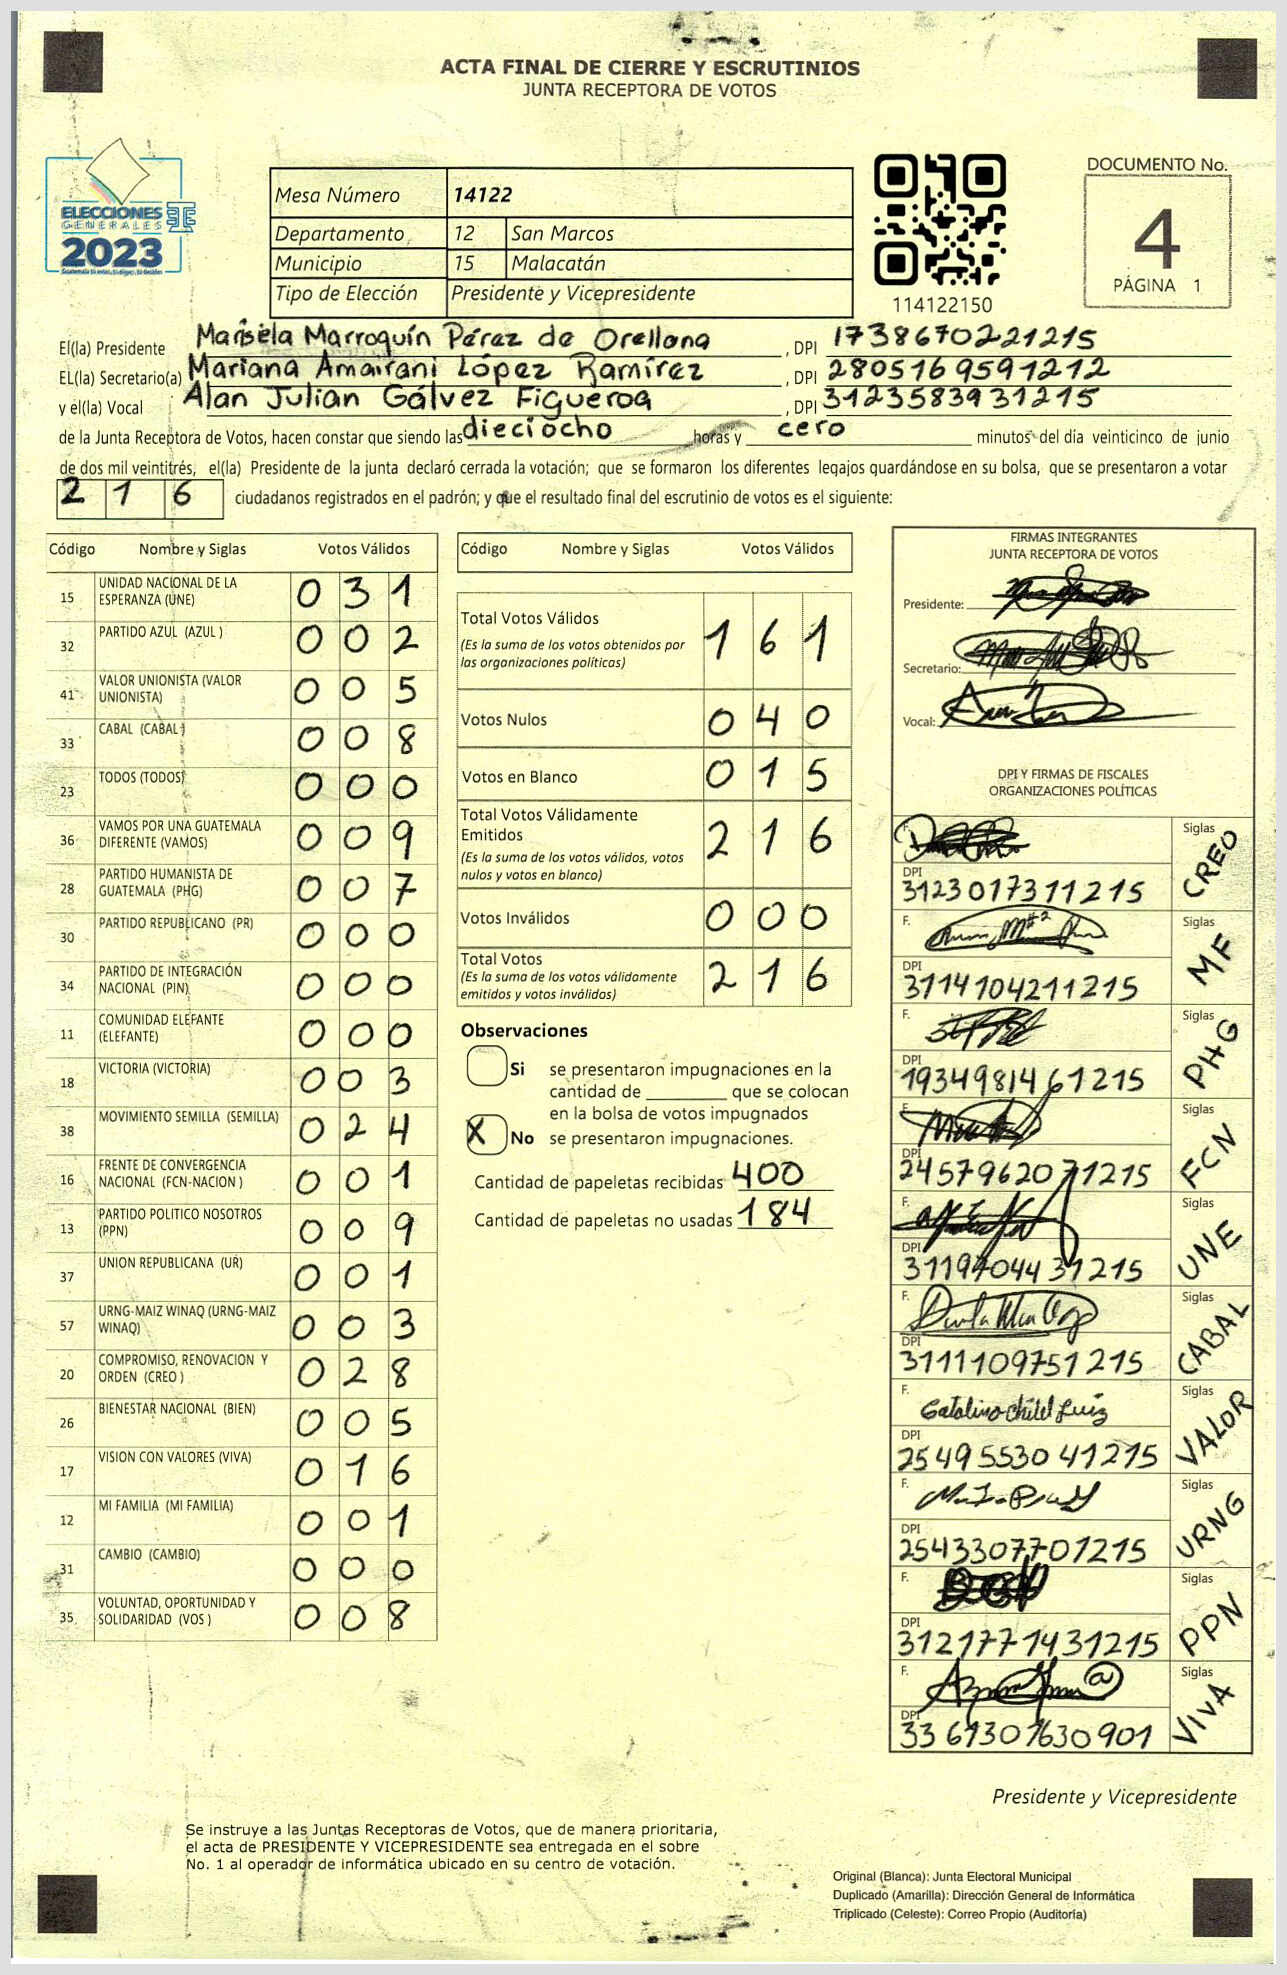 ACTA FINAL DE CIERRE Y ESCRUTINIOS
JUNTA RECEPTORA DE VOTOS
ELECCIONES
GENERALES
2023
Mesa Número 14122
Departamento 12 San Marcos
Municipio 15 Malacatán
Tipo de Elección Presidente y Vicepresidente
114122150
DOCUMENTO No.
4
PÁGINA 1
El(la) Presidente Marisela Marroquín Pérez de Orellana, DPI 1738670221215
EL(la) Secretario(a) Mariana Amairani López Ramírez, DPI 2805169591212
y el(la) Vocal Alan Julian Gálvez Figueroa, DPI 3123583931215
de la Junta Receptora de Votos, hacen constar que siendo las dieciocho horas y cero minutos del día veinticinco de junio
de dos mil veintitrés, el(la) Presidente de la junta declaró cerrada la votación; que se formaron los diferentes legajos guardándose en su bolsa, que se presentaron a votar
216 ciudadanos registrados en el padrón; y que el resultado final del escrutinio de votos es el siguiente:
Código Nombre y Siglas Votos Válidos
15 UNIDAD NACIONAL DE LA ESPERANZA (UNE) 031
32 PARTIDO AZUL (AZUL ) 002
41 VALOR UNIONISTA (VALOR UNIONISTA) 005
33 CABAL (CABAL ) 008
23 TODOS (TODOS) 000
36 VAMOS POR UNA GUATEMALA DIFERENTE (VAMOS) 009
28 PARTIDO HUMANISTA DE GUATEMALA (PHG) 007
30 PARTIDO REPUBLICANO (PR) 000
34 PARTIDO DE INTEGRACIÓN NACIONAL (PIN) 000
11 COMUNIDAD ELEFANTE (ELEFANTE) 000
18 VICTORIA (VICTORIA) 003
38 MOVIMIENTO SEMILLA (SEMILLA) 024
16 FRENTE DE CONVERGENCIA NACIONAL (FCN-NACION ) 001
13 PARTIDO POLITICO NOSOTROS (PPN) 009
37 UNION REPUBLICANA (UR) 001
57 URNG-MAIZ WINAQ (URNG-MAIZ WINAQ) 003
20 COMPROMISO, RENOVACION Y ORDEN (CREO ) 028
26 BIENESTAR NACIONAL (BIEN) 005
17 VISION CON VALORES (VIVA) 016
12 MI FAMILIA (MI FAMILIA) 001
31 CAMBIO (CAMBIO) 000
35 VOLUNTAD, OPORTUNIDAD Y SOLIDARIDAD (VOS ) 008
Código Nombre y Siglas Votos Válidos
Total Votos Válidos 161
(Es la suma de los votos obtenidos por
las organizaciones políticas)
Votos Nulos 040
Votos en Blanco 015
Total Votos Válidamente Emitidos 216
(Es la suma de los votos válidos, votos
nulos y votos en blanco)
Votos Inválidos 000
Total Votos 216
(Es la suma de los votos válidamente
emitidos y votos inválidos)
Observaciones
Si se presentaron impugnaciones en la
cantidad de ________ que se colocan
en la bolsa de votos impugnados
X No se presentaron impugnaciones.
Cantidad de papeletas recibidas 400
Cantidad de papeletas no usadas 184
FIRMAS INTEGRANTES
JUNTA RECEPTORA DE VOTOS
Presidente:
Secretario:
Vocal:
DPI Y FIRMAS DE FISCALES
ORGANIZACIONES POLÍTICAS
F. Siglas CREO
DPI 3123017311215
F. Siglas MF
DPI 3114104211215
F. Siglas PHG
DPI 1934981461215
F. Siglas FCN
DPI 2457962071215
F. Siglas UNE
DPI
F. Siglas CABAL
DPI 3111109751215
F. Siglas VALOR
DPI 2549553041215
F. Siglas URNG
DPI 2543307701215
F. Siglas PPN
DPI 3121771431215
F. Siglas VIVA
DPI 3361301630901
Presidente y Vicepresidente
Se instruye a las Juntas Receptoras de Votos, que de manera prioritaria,
el acta de PRESIDENTE Y VICEPRESIDENTE sea entregada en el sobre
No. 1 al operador de informática ubicado en su centro de votación.
Original (Blanca): Junta Electoral Municipal
Duplicado (Amarilla): Dirección General de Informática
Triplicado (Celeste): Correo Propio (Auditoría)